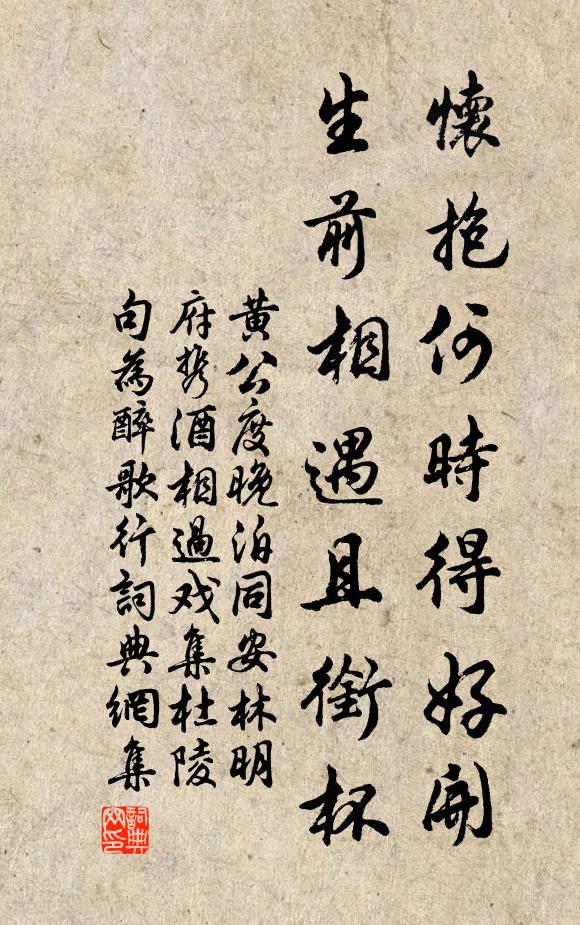 懷抱何時得好開
生前相遇且銜杯
黃公度晚泊同安林明
府携酒相過戏集杜陵
句為醉歌行詞典網集
詞典
网印